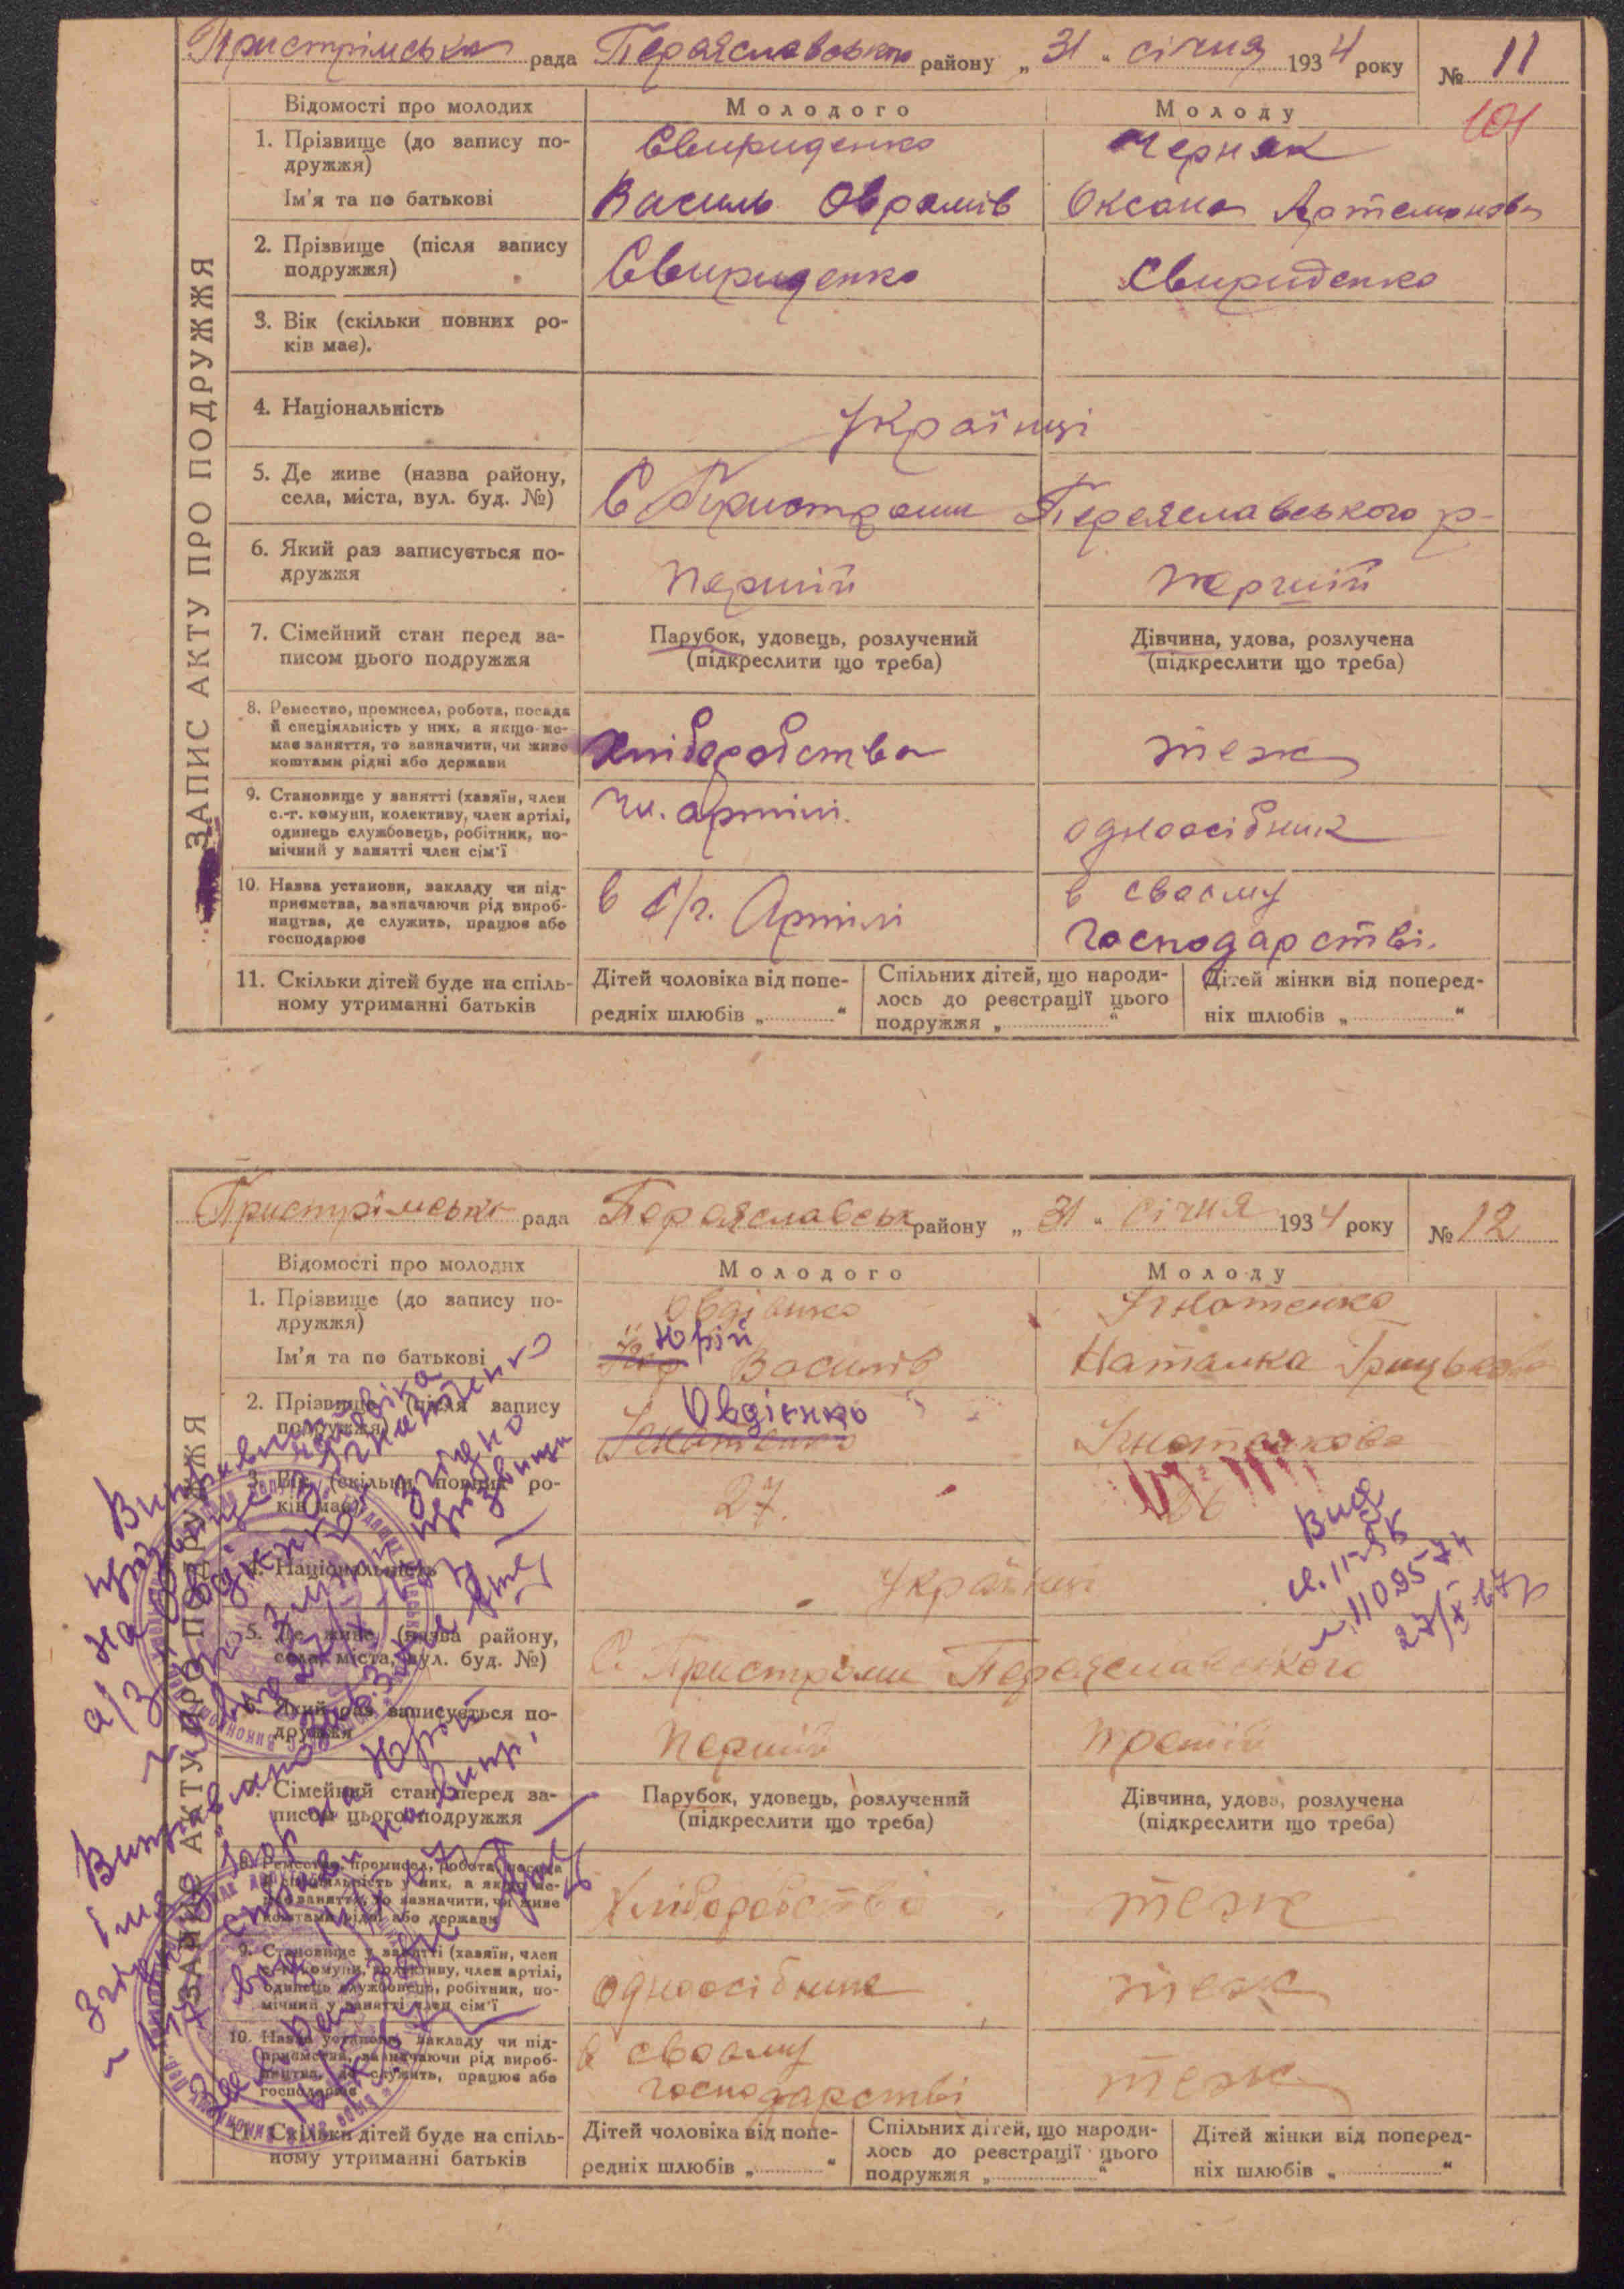 Пристрімська рада Переяславського району „31“ січня 1934 року № 11
101
ЗАПИС АКТУ ПРО ПОДРУЖЖЯ
Відомості про молодих Молодого Молоду
1. Прізвище (до запису по-
дружжя) Свириденко Черняк
Ім'я та по батькові Василь Оврамів Оксана Артемонова
2. Прізвище (після запису
подружжя) Свириденко Свириденко
3. Вік (скільки повних ро-
ків має).
4. Національність Українці
5. Де живе (назва району,
села, міста, вул. буд. №) С Пристроми Переяславського р-
6. Який раз записується по-
дружжя Перший перший
7. Сімейний стан перед за-
писом цього подружжя
Парубок, удовець, розлучений
(підкреслити що треба)
Дівчина, удова, розлучена
(підкреслити що треба)
8. Ремество, промисел, робота, посада
й спеціяльність у них, а якщо не-
має заняття, то зазначити, чи живе
коштами рідні або держави
Хліборобства теж
9. Становище у занятті (хазяїн, член
с.-г. комуни, колективу, член артілі,
одинець службовець, робітник, по-
мічний у занятті член сім'ї
Чл. артілі. одноосібник
10. Назва установи, закладу чи під-
приємства, зазначаючи рід вироб-
ництва, де служить, працює або
господарює
в с/г. Артілі
в своєму
господарстві.
11. Скільки дітей буде на спіль-
ному утриманні батьків
Дітей чоловіка від попе-
редніх шлюбів „ “
Спільних дітей, що народи-
лось до реєстрації цього
подружжя „ “
Дітей жінки від поперед-
ніх шлюбів „ “
Пристрімська рада Переяславськ району „31“ січня 1934 року № 12
ЗАПИС АКТУ ПРО ПОДРУЖЖЯ
Відомості про молодих Молодого Молоду
1. Прізвище (до запису по-
дружжя) Овдієнко Ігнатенко
Юрій
Ім'я та по батькові Василів Наталка Грицькова
2. Прізвище (після запису
подружжя) Овдієнко
Ігнатенко
3. Вік (скільки повних ро-
ків має). 27. 26
4. Національність Українці
5. Де живе (назва району,
села, міста, вул. буд. №) С. Пристроми Переяславського
6. Який раз записується по-
дружжя Перший третій
7. Сімейний стан перед за-
писом цього подружжя
Парубок, удовець, розлучений
(підкреслити що треба)
Дівчина, удова, розлучена
(підкреслити що треба)
8. Ремество, промисел, робота, посада
й спеціяльність у них, а якщо не-
має заняття, то зазначити, чи живе
коштами рідні або держави
Хліборобства теж
9. Становище у занятті (хазяїн, член
с.-г. комуни, колективу, член артілі,
одинець службовець, робітник, по-
мічний у занятті член сім'ї
одноосібник теж
10. Назва установи, закладу чи під-
приємства, зазначаючи рід вироб-
ництва, де служить, працює або
господарює
в своєму
господарстві теж
11. Скільки дітей буде на спіль-
ному утриманні батьків
Дітей чоловіка від попе-
редніх шлюбів „ “
Спільних дітей, що народи-
лось до реєстрації цього
подружжя „ “
Дітей жінки від поперед-
ніх шлюбів „ “
Виправлен
прізвище чоловіка
на Овдієнко з Ігнатенко
згідно
Виправлано
ім'я на Юрій
Згідно
Вид
11095